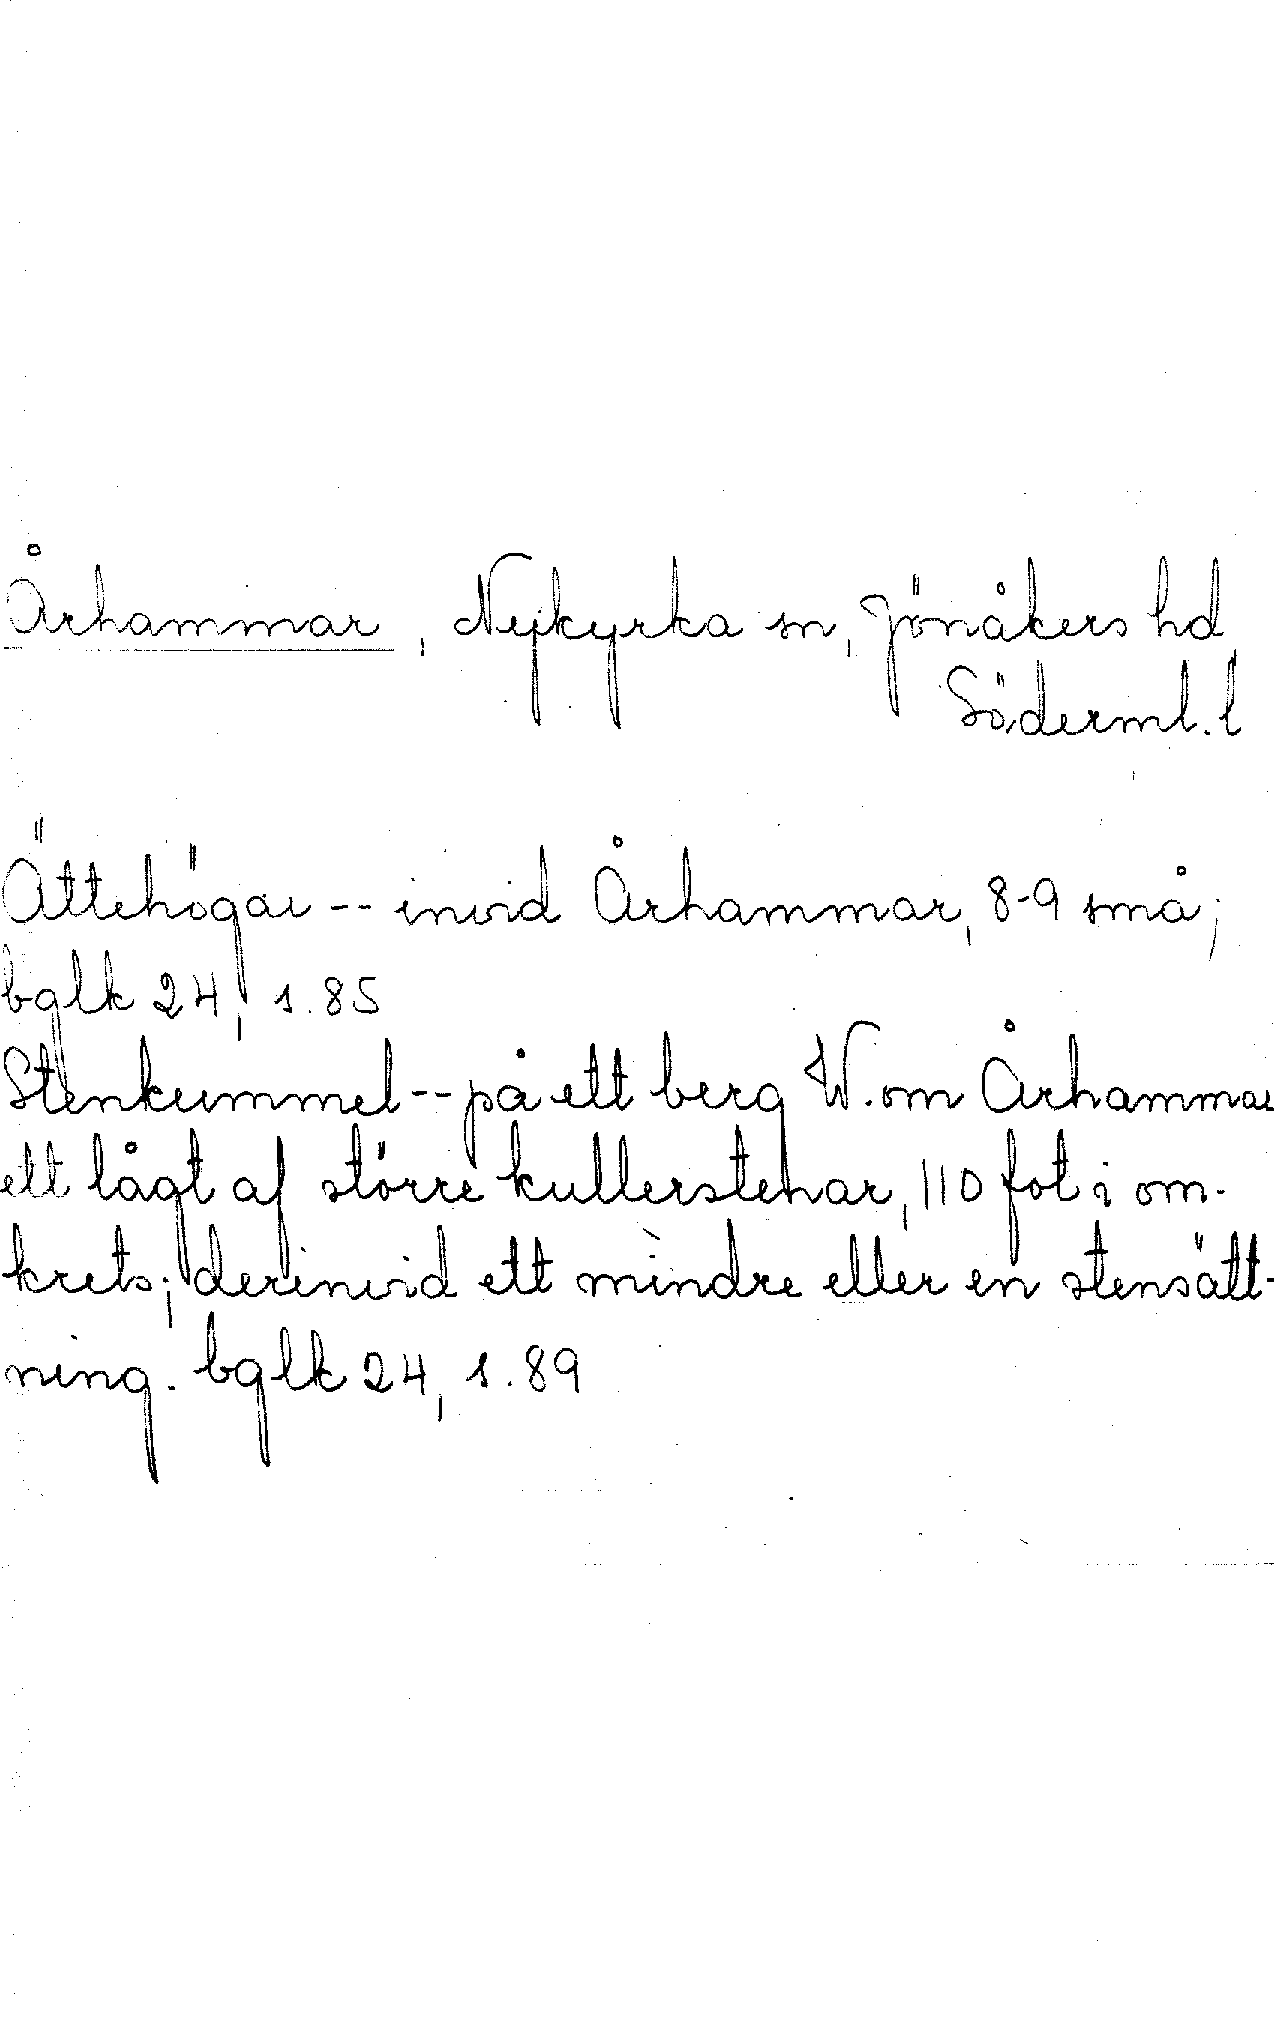 Århammar, Nykyrka sn, Jönåkers hd
Söderml. l
Ättehögar -- invid Århammar, 8-9 små;
bglk 24, s. 85
Stenkummel -- på ett berg W. om Århammar
ett lågt af större kullerstenar, 110 fot i om-
krets; derinvid ett mindre eller en stensätt-
ning. bglk 24, s. 89